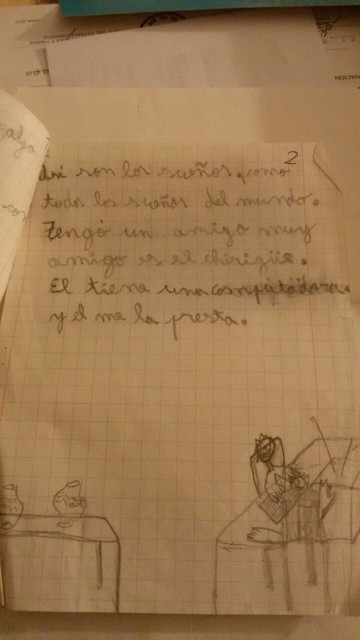 2
Así son los sueños, como
todos los sueños del mundo.
Tengo un amigo muy
amigo es el chirigüe.
El tiene una computadora.
y el me la presta.